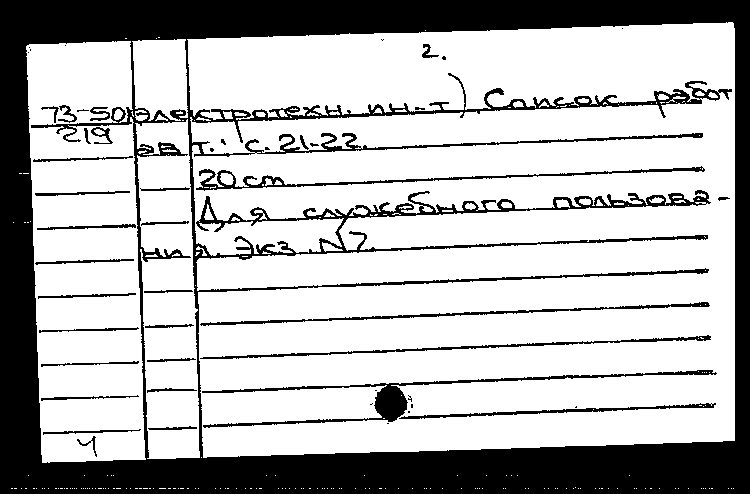 2.
73-50 электротехн. ин-т) Список работ
219 авт.: с. 21-22.
20 cm
Для служебного пользова-
ния. Экз. N7.
4